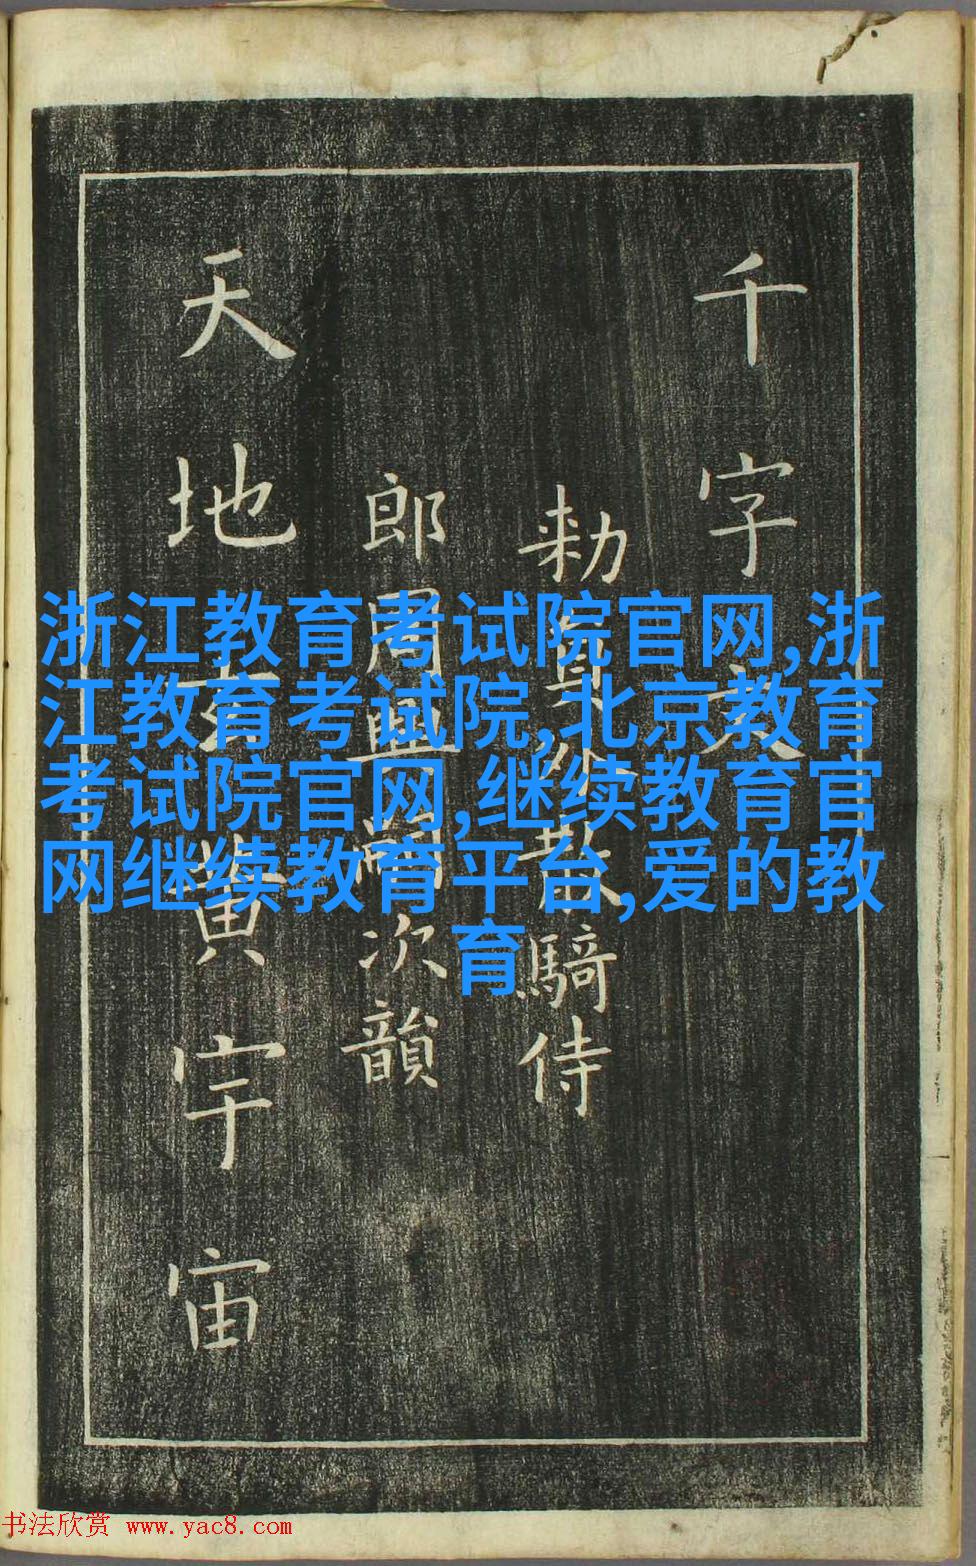 千字文
勅員外散騎侍
郎周興嗣次韻
天地玄黃宇宙
浙江教育考试院官网,浙
江教育考试院,北京教育
考试院官网,继续教育官
网继续教育平台,爱的教
育
书法欣赏 www.yac8.com